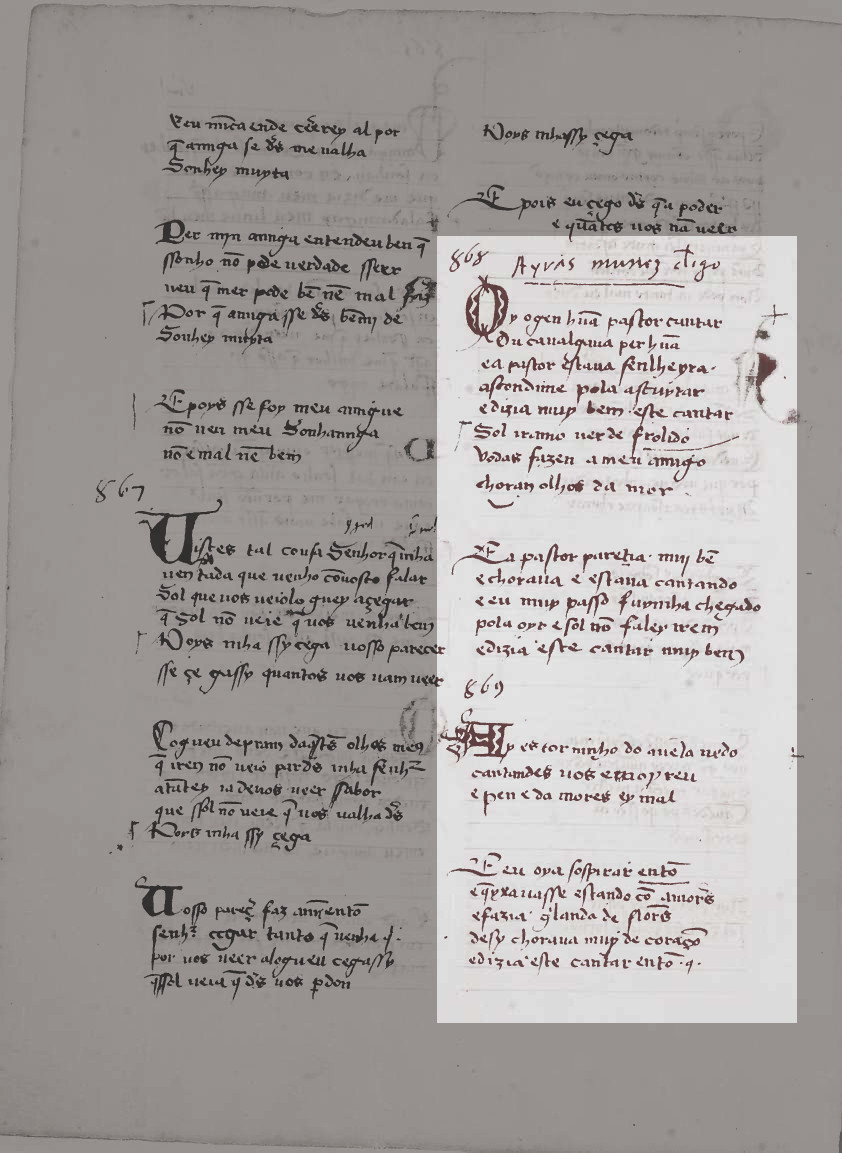 Eu nũca ende cẽrey al por
q̃ amiga se đs me valha
Sonhey muyta
Per min amiga entendeu ben q̃
ssonho nõ pode uerdade sseer
neu q̃ mer pode bẽ nẽ mal
Por q̃ amiga sse đs bẽmj de
Sonhey muyta
E poys sse foy meu amigue
nõ ueu meu Sonhamiga
nõ e mal nẽ bem
867
Uistes tal cousa Senhor q̃ mha
uen tada que uenho cõuosco falar
Sol que uos ueiolo guey açegar
q̃ Sol nõ ueie q̃ uos uenha bem
Poys mha ssy cega uosso parecer
sse çe gassy quantos uos uam ueer
Cogueu de pram daq̃stes olhos me9
q̃ iren nõ ueio par đs mha senhr
atãtey ia deuos ueer ssabor
que ssol nõ ueie q̃ uos ualha đs
Poys mha ssy çega
Uosso pareç faz amẽento
senhr cegar tanto q̃ uenha q.
por uos ueer alogueu cegassy
q̃ ssol ueie q̃ đs uos p̱don
Poys mhassy çega
E pois eu çego đs q̃ a poder
e quãtos uos nã ueer
868
Ayras nunez cligo
Oy ogen hũa pastor cantar
Du caualgaua per hũa
ea pastor estaua senlheyra.
ascondime pola ascuytar
edizia muy bem este cantar
Sol iramo uerde frolido
Vodas fazen a meu amigo
choran olhos da mor
Ea pastor pareçia muj bẽ
e choraua e estaua cantando
e eu muy passo fuymha chegado
pola oyr e sol nõ faley rem
edizia este cantar muy bem
869
Ay estor ninho do auela nedo
cantandes uos e moyreu
e pen e da mores ey mal
E eu oya sospirar entõ
e q̃yxauasse estando cõ amors
efazia g̃landa de flors
desy choraua muy de coraçõ
edizia este cantar entõ. q.